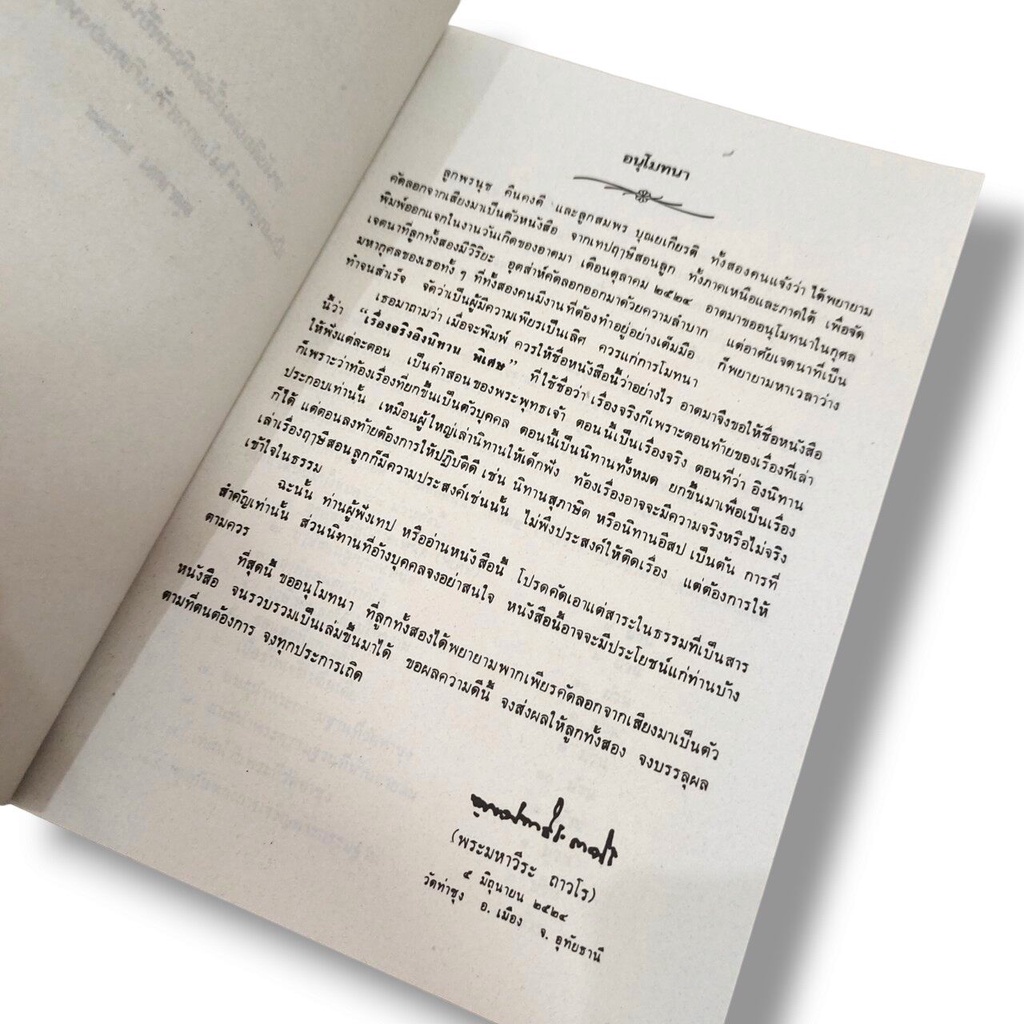 อนุโมทนา
ลูกพรนุช คืนคงดี และลูกสมพร บุณยเกียรติ ทั้งสองคนแจ้งว่า ได้พยายาม
คัดลอกจากเสียงมาเป็นตัวหนังสือ จากเทปฤๅษีสอนลูก ทั้งภาคเหนือและภาคใต้ เพื่อจัด
พิมพ์ออกแจกในงานวันเกิดของอาตมา เดือนตุลาคม ๒๕๒๔ อาตมาขออนุโมทนาในกุศล
เจตนาที่ลูกทั้งสองมีวิริยะ อุตส่าห์คัดลอกออกมาด้วยความลำบาก แต่อาศัยเจตนาที่เป็น
มหากุศลของเธอทั้ง ๆ ที่ทั้งสองคนมีงานที่ต้องทำอยู่อย่างเต็มมือ ก็พยายามหาเวลาว่าง
ทำจนสำเร็จ จัดว่าเป็นผู้มีความเพียรเป็นเลิศ ควรแก่การโมทนา
เธอมาถามว่า เมื่อจะพิมพ์ ควรให้ชื่อหนังสือนี้ว่าอย่างไร อาตมาจึงขอให้ชื่อหนังสือ
นี้ว่า "เรื่องจริงอิงนิทาน พิเศษ" ที่ใช้ชื่อว่า เรื่องจริงก็เพราะตอนท้ายของเรื่องที่เล่า
ให้ฟังแต่ละตอน เป็นคำสอนของพระพุทธเจ้า ตอนนี้เป็นเรื่องจริง ตอนที่ว่า อิงนิทาน
ก็เพราะว่าท้องเรื่องที่ยกขึ้นเป็นตัวบุคคล ตอนนี้เป็นนิทานทั้งหมด ยกขึ้นมาเพื่อเป็นเรื่อง
ประกอบเท่านั้น เหมือนผู้ใหญ่เล่านิทานให้เด็กฟัง ท้องเรื่องอาจจะมีความจริงหรือไม่จริง
ก็ได้ แต่ตอนลงท้ายต้องการให้ปฏิบัติดี เช่น นิทานสุภาษิต หรือนิทานอีสป เป็นต้น การที่
เล่าเรื่องฤๅษีสอนลูกก็มีความประสงค์เช่นนั้น ไม่พึงประสงค์ให้ติดเรื่อง แต่ต้องการให้
เข้าใจในธรรม
ฉะนั้น ท่านผู้ฟังเทป หรืออ่านหนังสือนี้ โปรดคัดเอาแต่สาระในธรรมที่เป็นสาร
สำคัญเท่านั้น ส่วนนิทานที่อ้างบุคคลจงอย่าสนใจ หนังสือนี้อาจจะมีประโยชน์แก่ท่านบ้าง
ตามควร
ที่สุดนี้ ขออนุโมทนา ที่ลูกทั้งสองได้พยายามพากเพียรคัดลอกจากเสียงมาเป็นตัว
หนังสือ จนรวบรวมเป็นเล่มขึ้นมาได้ ขอผลความดีนี้ จงส่งผลให้ลูกทั้งสอง จงบรรลุผล
ตามที่ตนต้องการ จงทุกประการเถิด
(พระมหาวีระ ถาวโร)
๕ มิถุนายน ๒๕๒๔
วัดท่าซุง อ. เมือง จ. อุทัยธานี